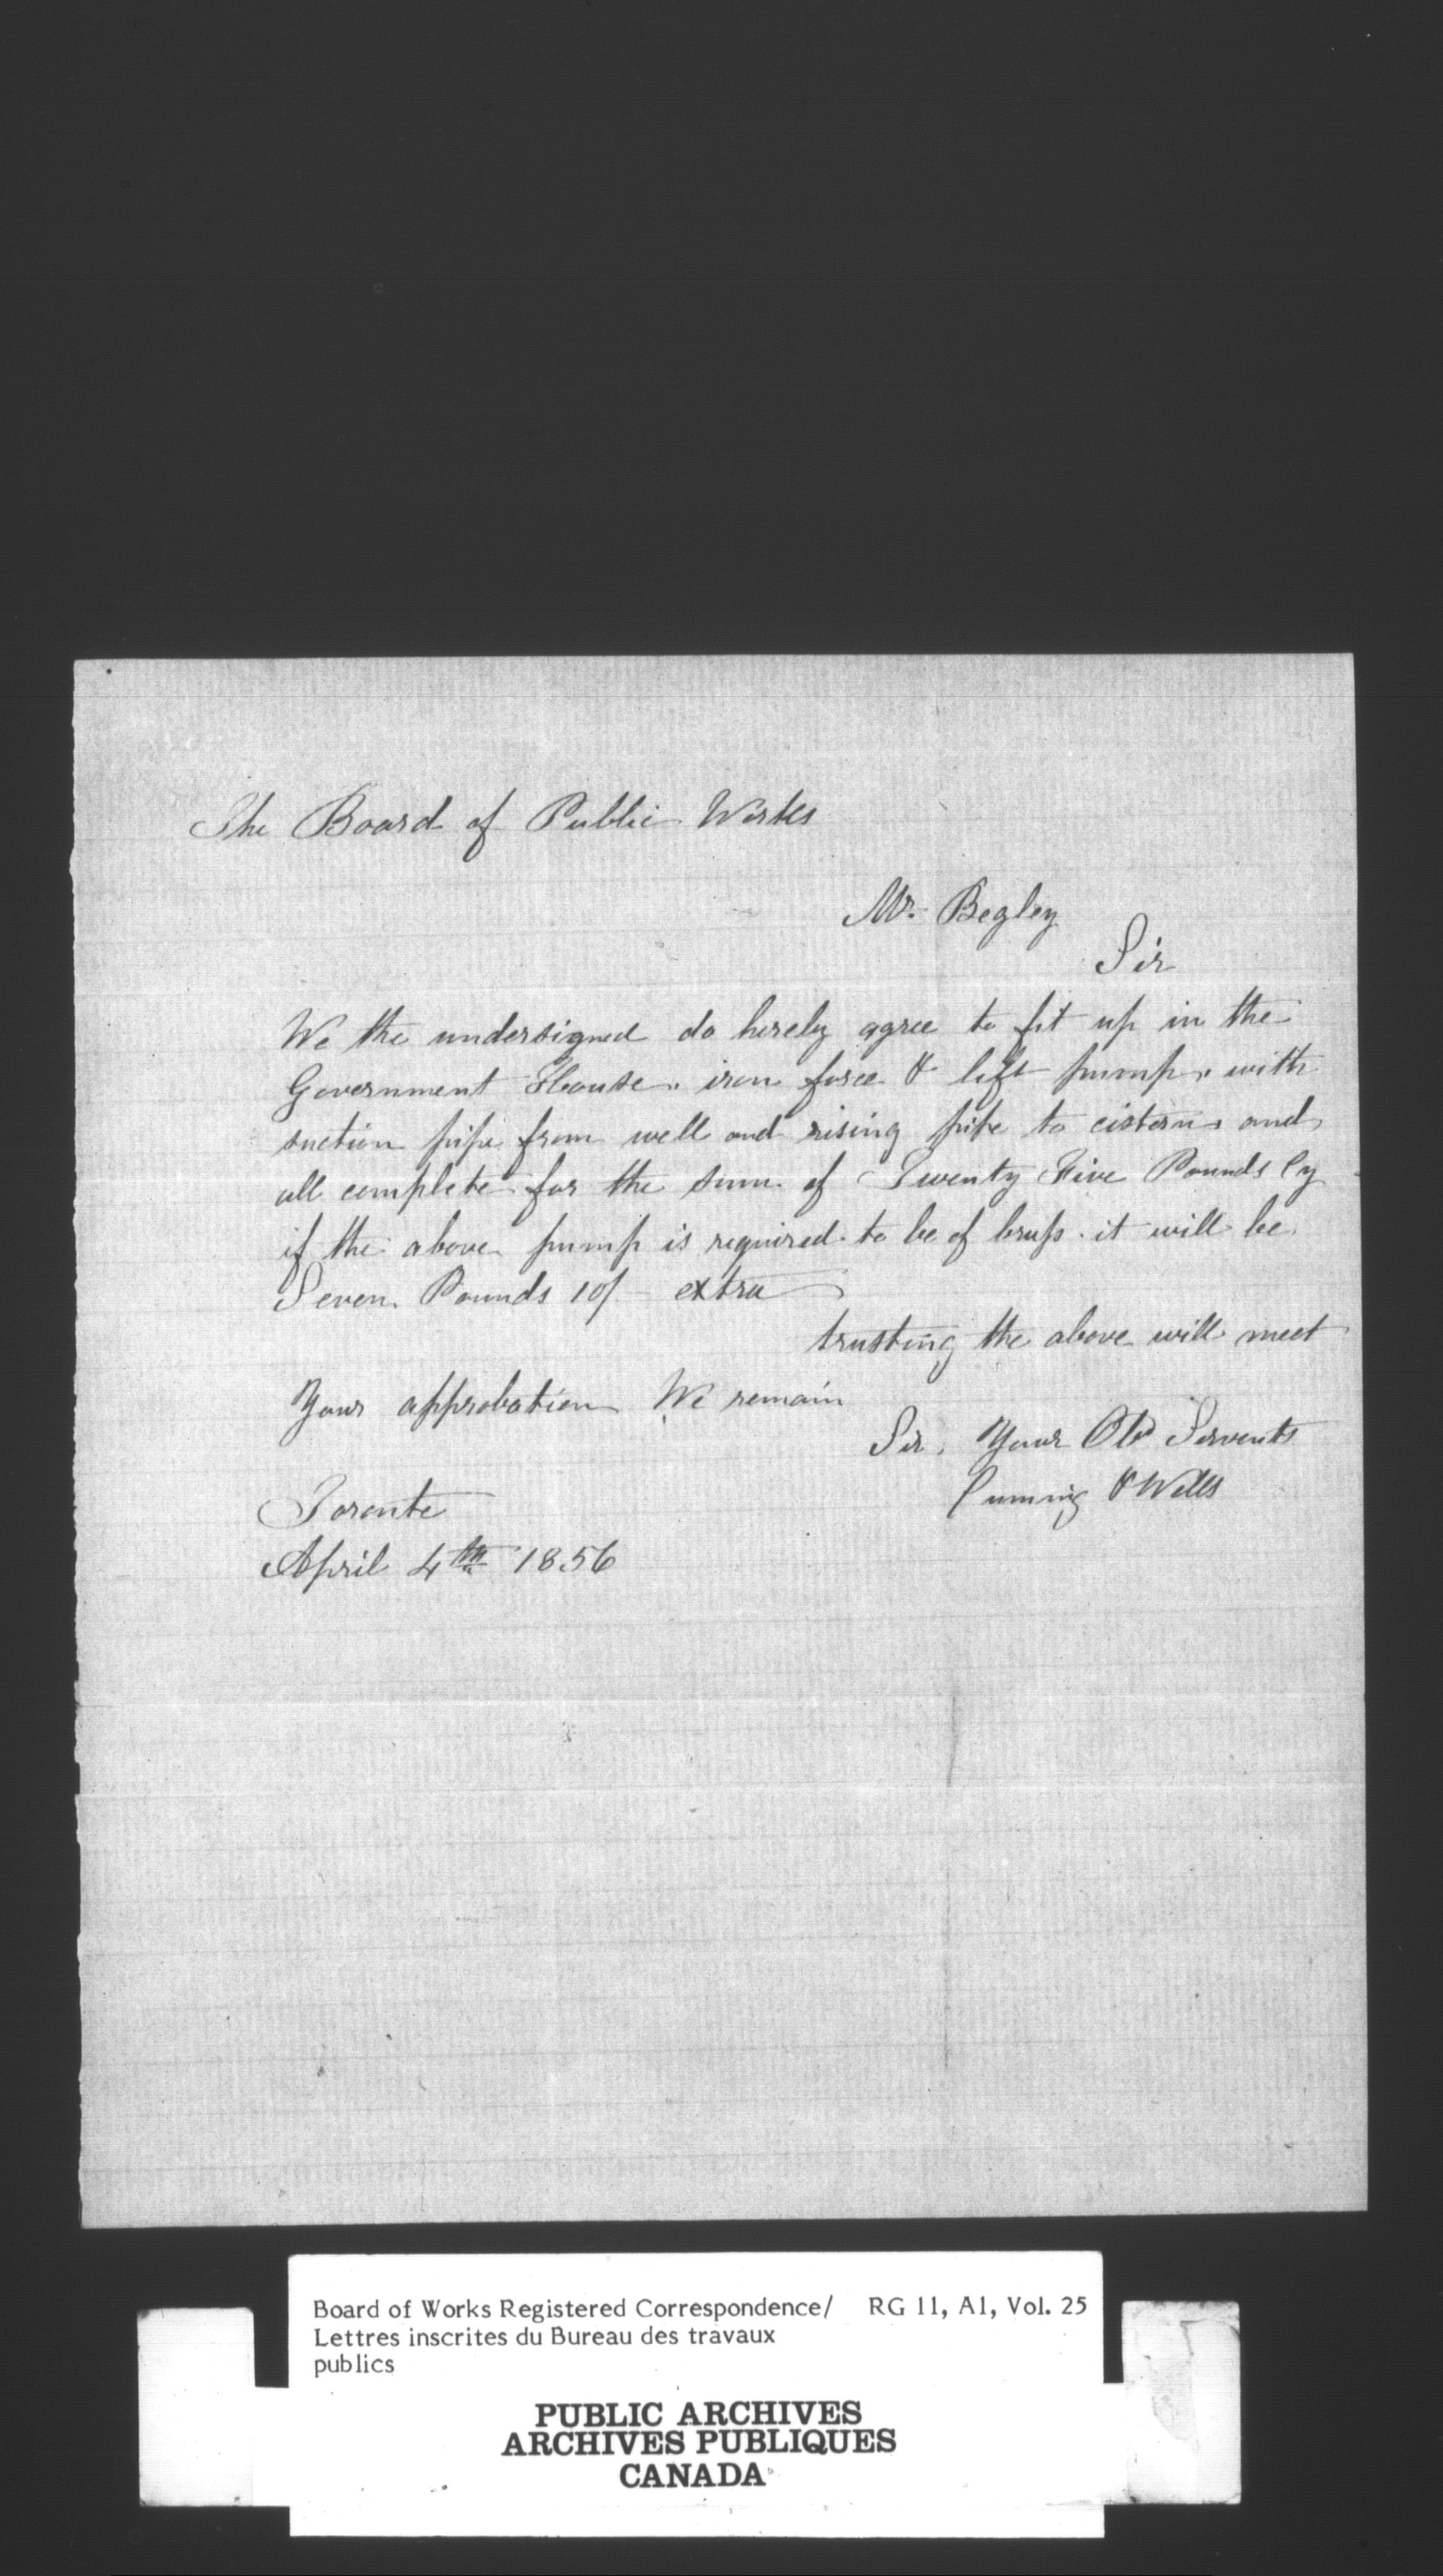 The Board of Public Works
Mr. Begley
Sir
We the undersigned do hereby agree to fit up in the
Government House. iron force & lift pump. with
suction pipe from well and rising pipe to cistern and
all complete for the sum of Twenty Five Pounds Cy
if the above pump is required to be of brass. it will be
Seven Pounds 10/- extra
trusting the above will meet
Your approbation We remain
Sir, Your Obt Servents
& Wells
Toronto
April 4th 1856
Board of Works Registered Correspondence/ RG 11, A1, Vol. 25
Lettres inscrites du Bureau des travaux
publics
PUBLIC ARCHIVES
ARCHIVES PUBLIQUES
CANADA